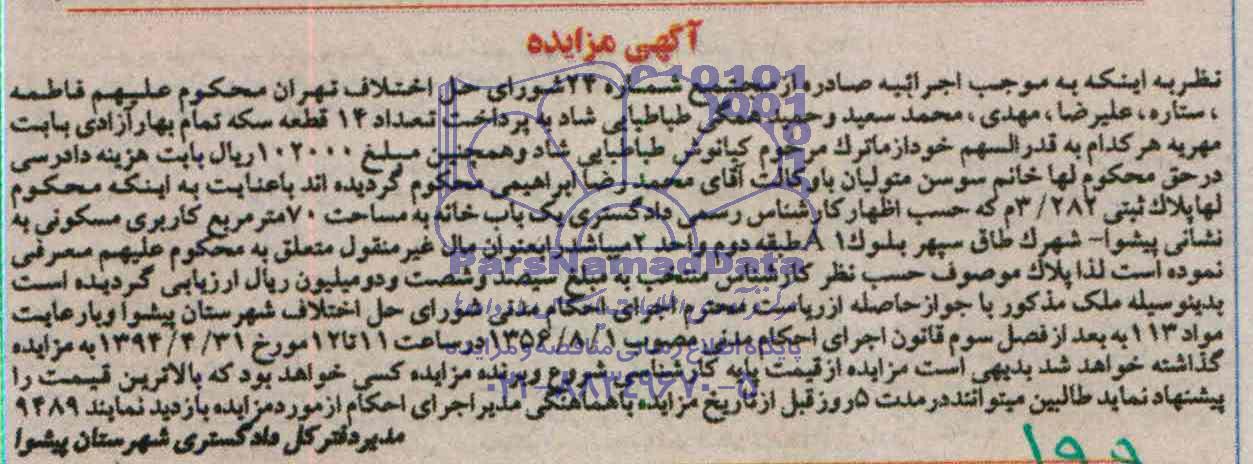 آگهی مزایده
نظر به اینکه به موجب اجرائیه صادره از مجتمع شماره ۲۴ شورای حل اختلاف تهران محکوم علیهم فاطمه
، ستاره، علیرضا، مهدی، محمد سعید وحمید همگی طباطبایی شاد به پرداخت تعداد ۱۴ قطعه سکه تمام بهار آزادی بابت
مهریه هر کدام به قدرالسهم خود از ماترک مرحوم کیانوش طباطبایی شاد و همچنین مبلغ ۱۰۲۰۰۰ ریال بابت هزینه دادرسی
در حق محکوم لها خانم سوسن متولیان باوکالت آقای محمد رضا ابراهیمی محکوم گردیده اند باعنایت به اینکه محکوم
لها پلاک ثبتی ۳/۲۸۲م که حسب اظهار کارشناس رسمی دادگستری یک باب خانه به مساحت ۷۰ متر مربع کاربری مسکونی به
نشانی پیشوا- شهرک طاق سپهر بلوک A۱ طبقه دوم واحد ۲ میباشد را بعنوان مال غیر منقول متعلق به محکوم علیهم معرفی
نموده است لذا پلاک موصوف حسب نظر کارشناس منتخب به مبلغ سیصد و شصت و دو میلیون ریال ارزیابی گردیده است
بدینوسیله ملک مذکور با جواز حاصله از ریاست محترم اجرای احکام مدنی شورای حل اختلاف شهرستان پیشوا و با رعایت
مواد ۱۱۳ به بعد از فصل سوم قانون اجرای احکام مدنی مصوب ۱۳۵۶/۸/۱ در ساعت ۱۱ تا ۱۲ مورخ ۱۳۹۴/۴/۳۱ به مزایده
گذاشته خواهد شد بدیهی است مزایده از قیمت پایه کارشناسی شروع و برنده مزایده کسی خواهد بود که بالاترین قیمت را
پیشنهاد نماید طالبین میتوانند در مدت ۵ روز قبل از تاریخ مزایده باهماهنگی مدیر اجرای احکام از مورد مزایده بازدید نمایند ۹۴۸۹
مدیر دفتر کل دادگستری شهرستان پیشوا
ParsNamadData
پایگاه اطلاع رسانی مناقصه و مزایده
۰۲۱-۸۸۳۴۹۶۷۰-۵